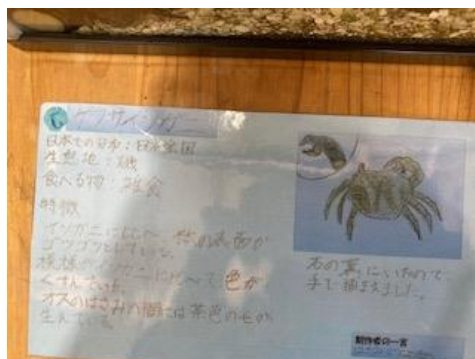 ケフサイソガニ
日本での分布：日本全国
生息地：磯
食べる物：雑食
特徴
イソガニに比べ 体の表面が
ゴツゴツとしている。
イソガニに比べて 色が
くすんでいる。
オスのはさみの間には茶色の毛が
生えている。
石の裏にいたので
手で捕まえました。
制作者の一言